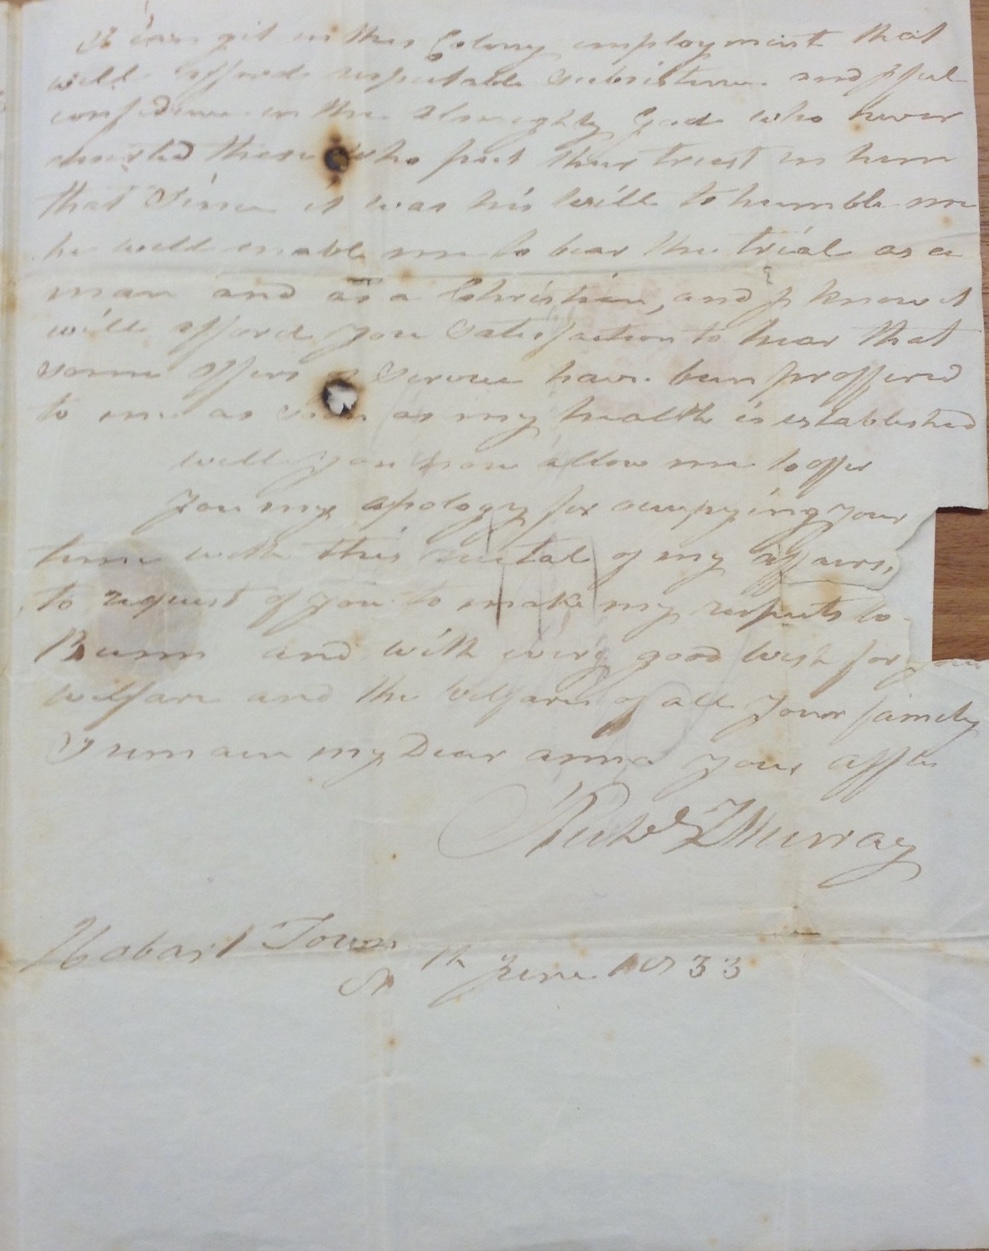 I can git in this Colony employment that
will afford respectable subsistence and I feel
confidence in the Almighty God who never
deserted those who put their trust in him
that Since it was his Will to humble me
he will enable me to bear the trial as a
man and as a Christian, and I know it
will afford you Satisfaction to hear that
some offers of Service have been proffered
to me as soon as my health is established
will you now allow me to offer
you my apology for occupying your
time with this recital of my affairs,
to request of you to make my respects to
Bunn and with every good wish for your
welfare and the Welfare of all your family
I remain my Dear anna your affte
Murray
Hobart Town
8th June 1833